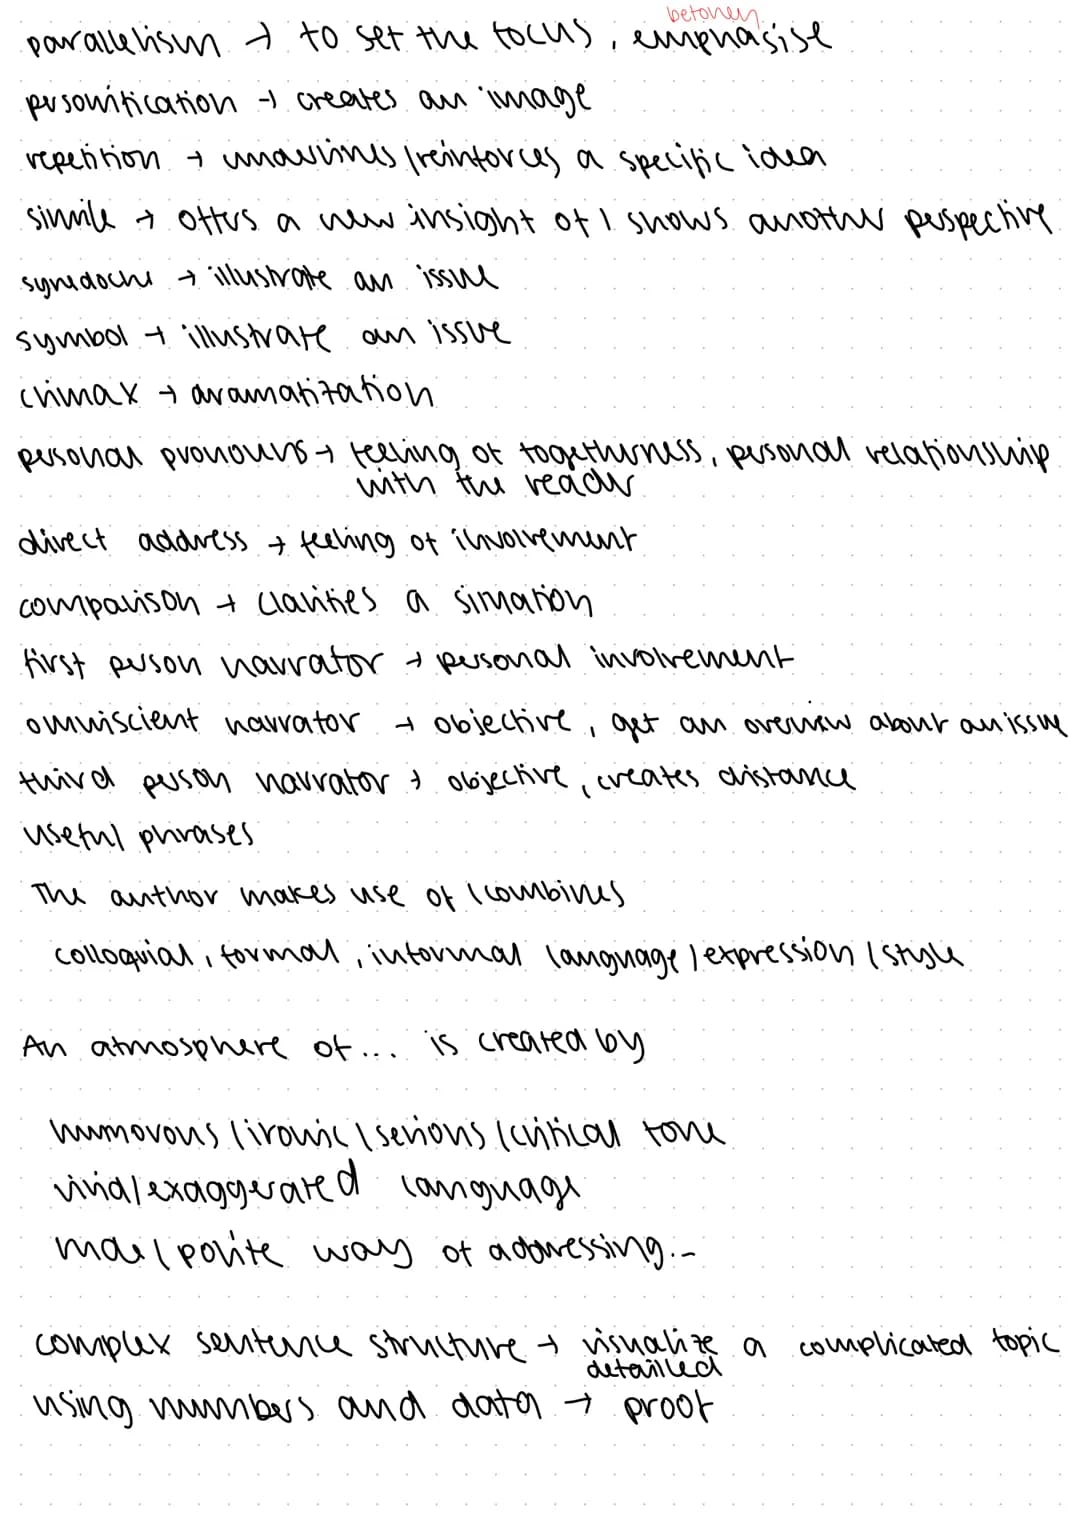 betonen
parallelism → to set the focus, emphasise
personification → creates an image
repetition → underlines / reinforces a specific idea
simile → offers a new insight of / shows another perspective
synedoche → illustrate an issue
symbol → illustrate an issue
climax → dramatization
personal pronouns → feeling of togetherness, personal relationship
with the reader
direct address → feeling of involvement
comparison → clarifies a situation
first person narrator → personal involvement
omniscient narrator → objective, get an overview about an issue
third person narrator → objective, creates distance
useful phrases
The author makes use of / combines
colloquial, formal, informal language / expression / style
An atmosphere of ... is created by
humorous / ironic / serious / critical tone
vivid / exaggerated language
/ polite way of addressing...
complex sentence structure → visualize a complicated topic
detailled
using numbers and data → proof